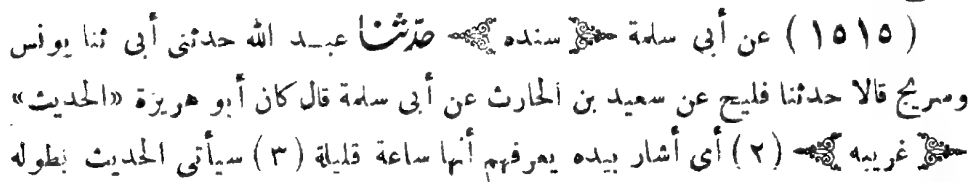 ( ١٥١٥ ) عن أبي سلمة سنده حدثنا عبد الله حدثنى أبى ثنا يونس
وسريج قالا حدثنا فليح عن سعيد بن الحارث عن أبى سلمة قال كان أبو هريرة «الحديث»
غريبه ( ٢ ) أى أشار بيده يعرفهم أنها ساعة قليلة ( ٣ ) سيأتى الحديث بطوله